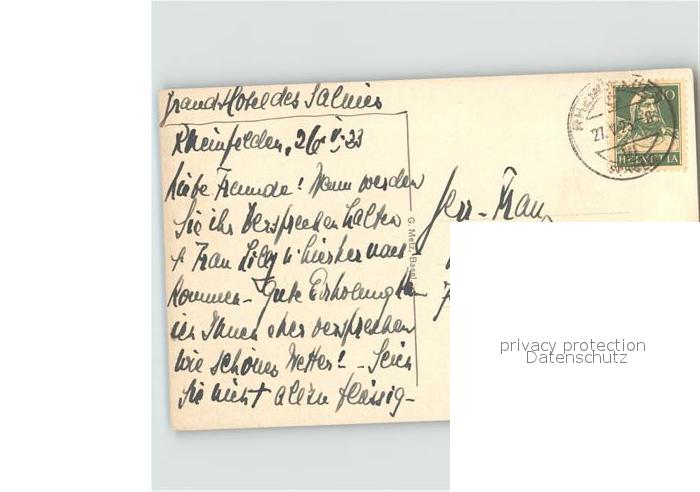 Grand Hotel des Salines
Rheinfelden, 26 V. 33
Liebe Freunde! Wann werden
Sie ihr Versprechen halten
Frau Lilly hierher
kommen - Gute Erholung kann
ich Ihnen eher versprechen
wie schönes Wetter! - Seien
Sie nicht allzu flässig -
G. Metz, Basel
Herr - Frau
RHEIN
27. V. 33
10
HELVETIA
privacy protection
Datenschutz